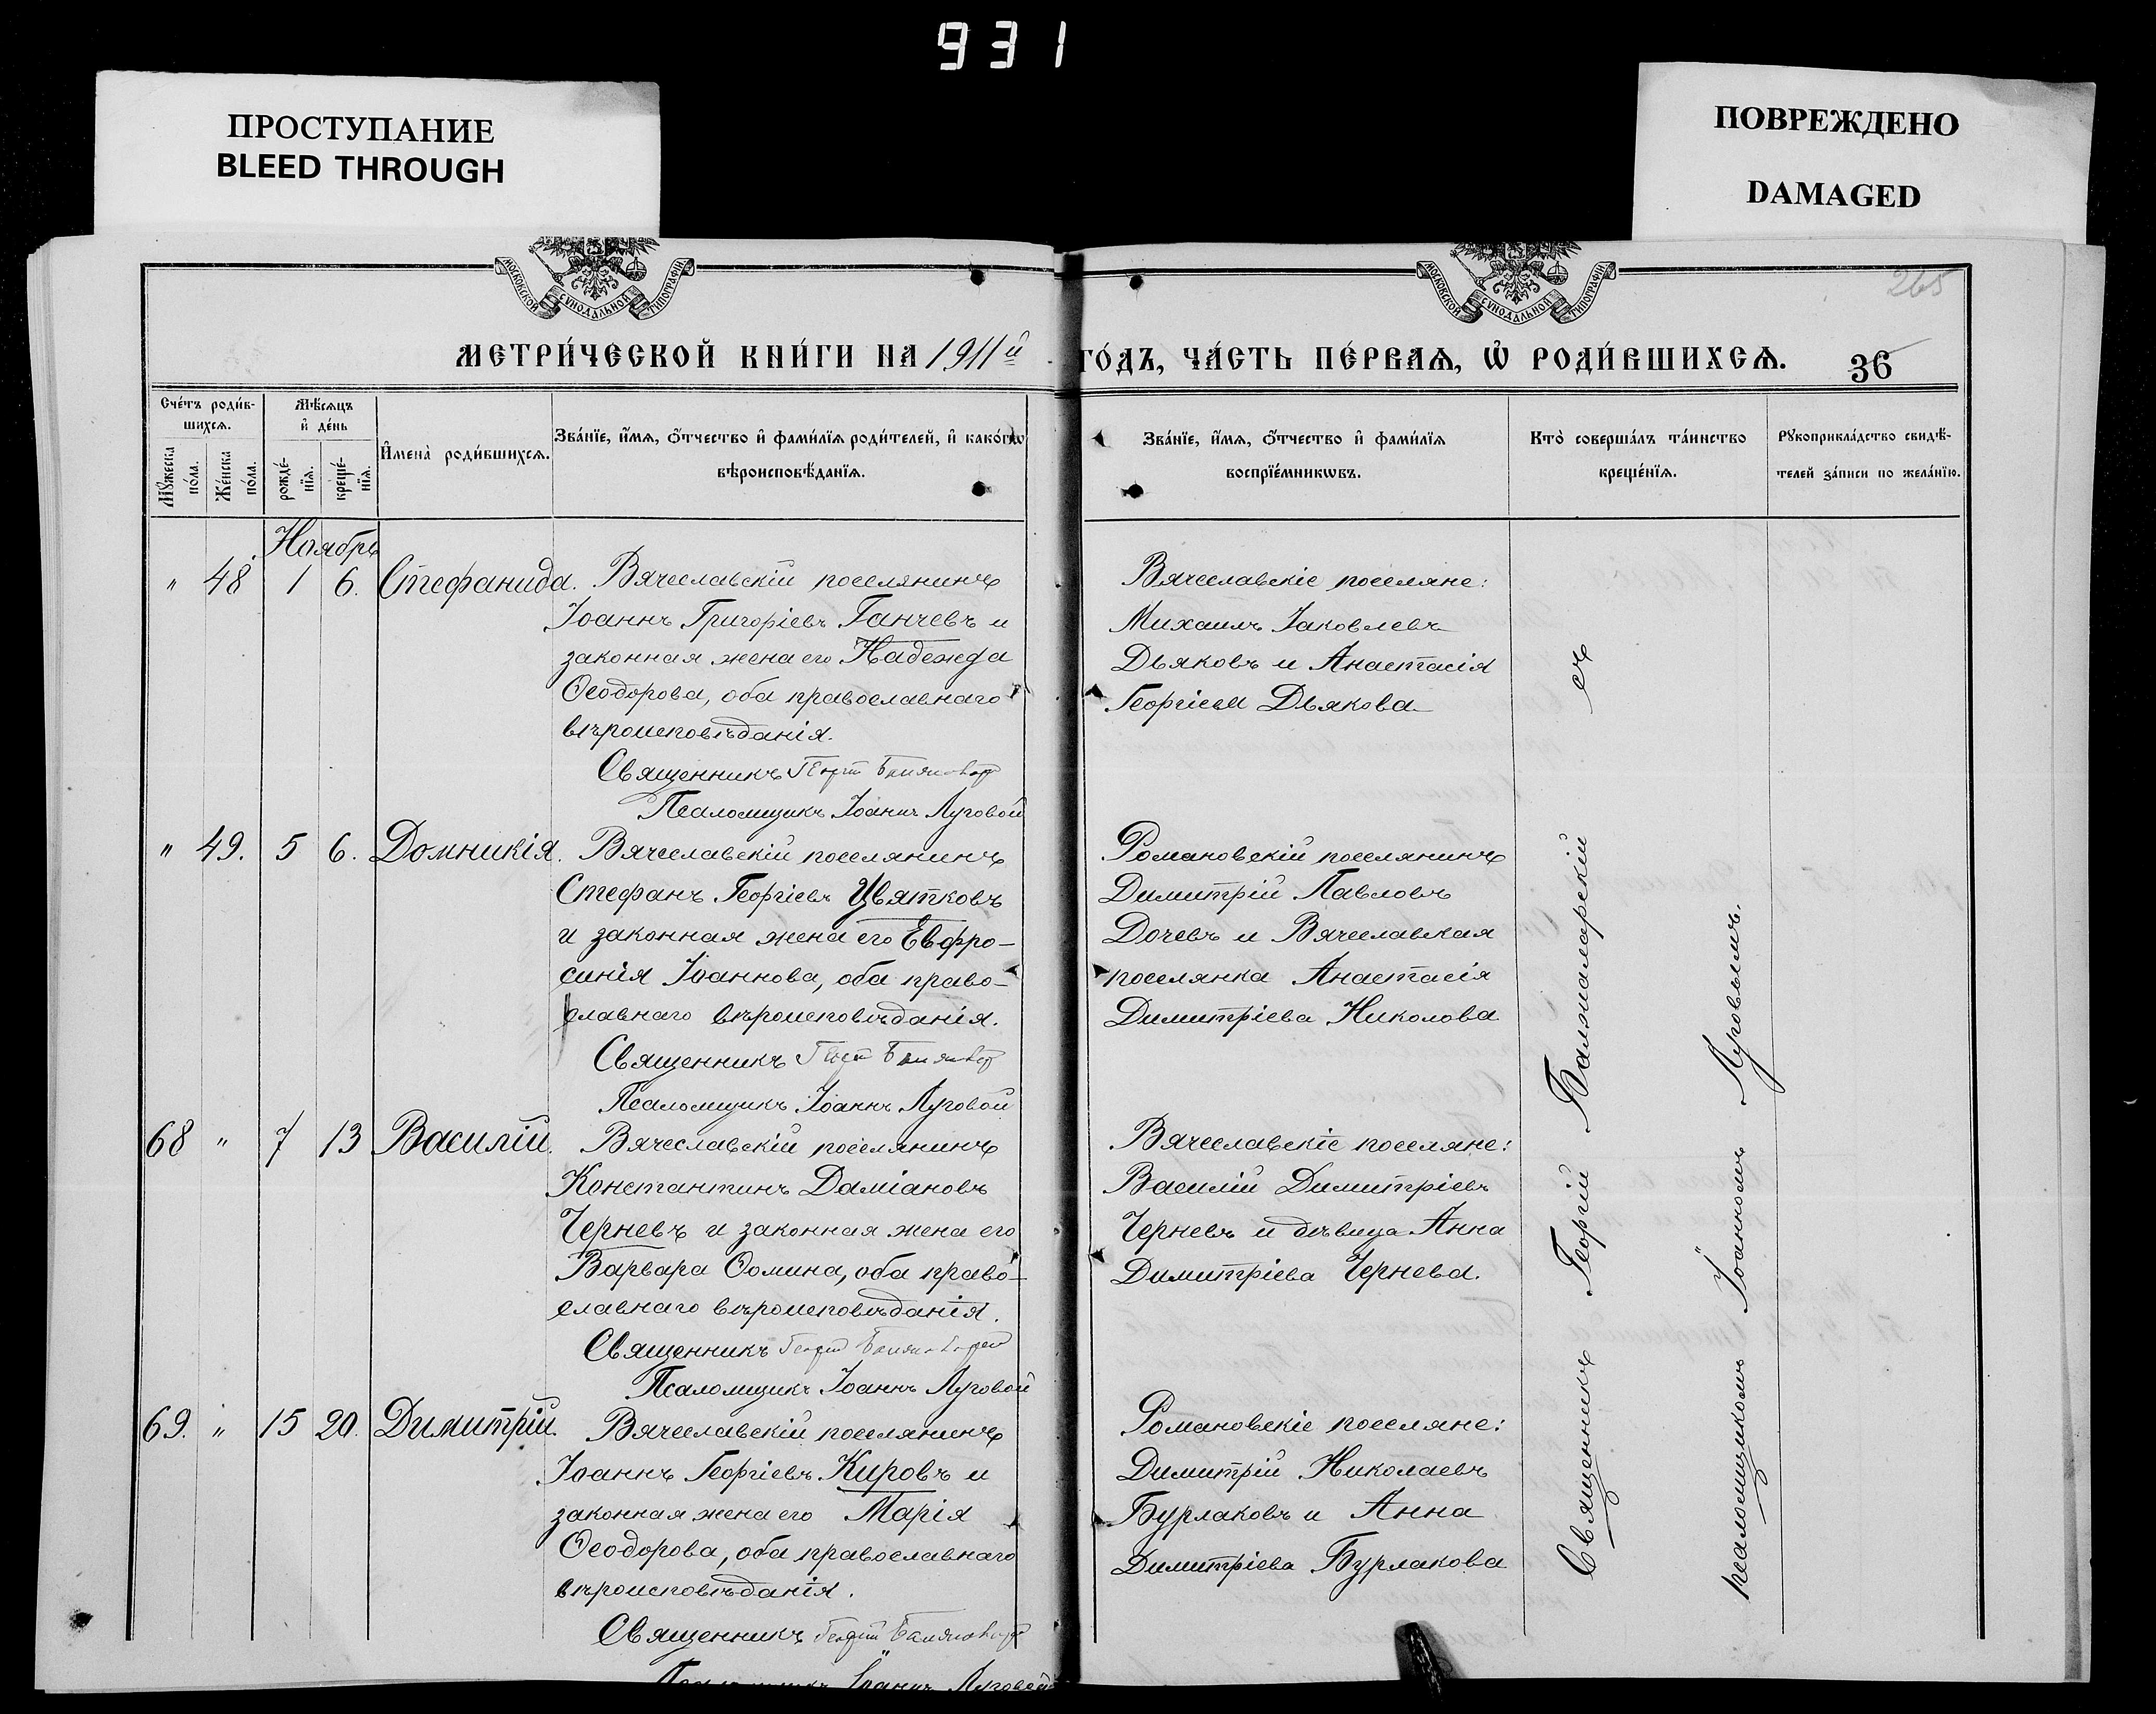 931
ПРОСТУПАНИЕ
BLEED THROUGH
ПОВРЕЖДЕНО
DAMAGED
МОСКОВСКОЙ СѴНОДАЛЬНОЙ ТИПОГРАФІИ
МОСКОВСКОЙ СѴНОДАЛЬНОЙ ТИПОГРАФІИ
265
МЕТРИ́ЧЕСКОЙ КНИ́ГИ НА 1911й
ГО́ДЪ, ЧА́СТЬ ПЕ́РВАѦ, Ѡ҆ РОДИ́ВШИХСѦ. 36
Сче́тъ роди́в-
шихсѧ.
Мꙋжеска по́ла.
Же́нска по́ла.
Мѣ́сѧцъ
и҆ де́нь
рожде́-
нїѧ.
креще́-
нїѧ.
И҆мена̀ роди́вшихсѧ.
Зва́нїе, и҆́мѧ, ѻ҆́тчество и҆ фами́лїѧ роди́телей, и҆ како́гѡ
вѣроисповѣ́данїѧ.
Зва́нїе, и҆́мѧ, ѻ҆́тчество и҆ фами́лїѧ
воспрїе́мникѡвъ.
Кто̀ соверша́лъ та́инство
креще́нїѧ.
Рꙋкоприкла́дство свидѣ́-
телей за́писи по жела́нїю.
Ноябрь
" 48 1 6. Стефанида. Вячеславскій поселянинъ
Іоаннъ Григоріевъ Ганчевъ и
законная жена его Надежда
Ѳеодорова, оба православнаго
вѣроисповѣданія.
Священникъ Георгій
Псаломщикъ Іоаннъ Луговой
Вячеславскіе поселяне:
Михаилъ Іаковлевъ
Дьяковъ и Анастасія
Георгіева Дьякова
" 49. 5 6. Домникія. Вячеславскій поселянинъ
Стефанъ Георгіевъ Цвятковъ
и законная жена его Евфро-
синія Іоаннова, оба право-
славнаго вѣроисповѣданія.
Священникъ Георгій
Псаломщикъ Іоаннъ Луговой
Романовскій поселянинъ
Димитрій Павловъ
Дочевъ и Вячеславская
поселянка Анастасія
Димитріева Николова
68 " 7 13 Василій. Вячеславскій поселянинъ
Константинъ Даміановъ
Черневъ и законная жена его
Варвара Ѳомина, оба право-
славнаго вѣроисповѣданія.
Священникъ Георгій
Псаломщикъ Іоаннъ Луговой
Вячеславскіе поселяне:
Василій Димитріевъ
Черневъ и дѣвица Анна
Димитріева Чернева.
69. " 15 20. Димитрій. Вячеславскій поселянинъ
Іоаннъ Георгіевъ Кировъ и
законная жена его Марія
Ѳеодорова, оба православнаго
вѣроисповѣданія.
Священникъ Георгій
Псаломщикъ Іоаннъ Луговой
Романовскіе поселяне:
Димитрій Николаевъ
Бурлаковъ и Анна
Димитріева Бурлакова
Священникъ Георгій съ
псаломщикомъ Іоанномъ Луговымъ.